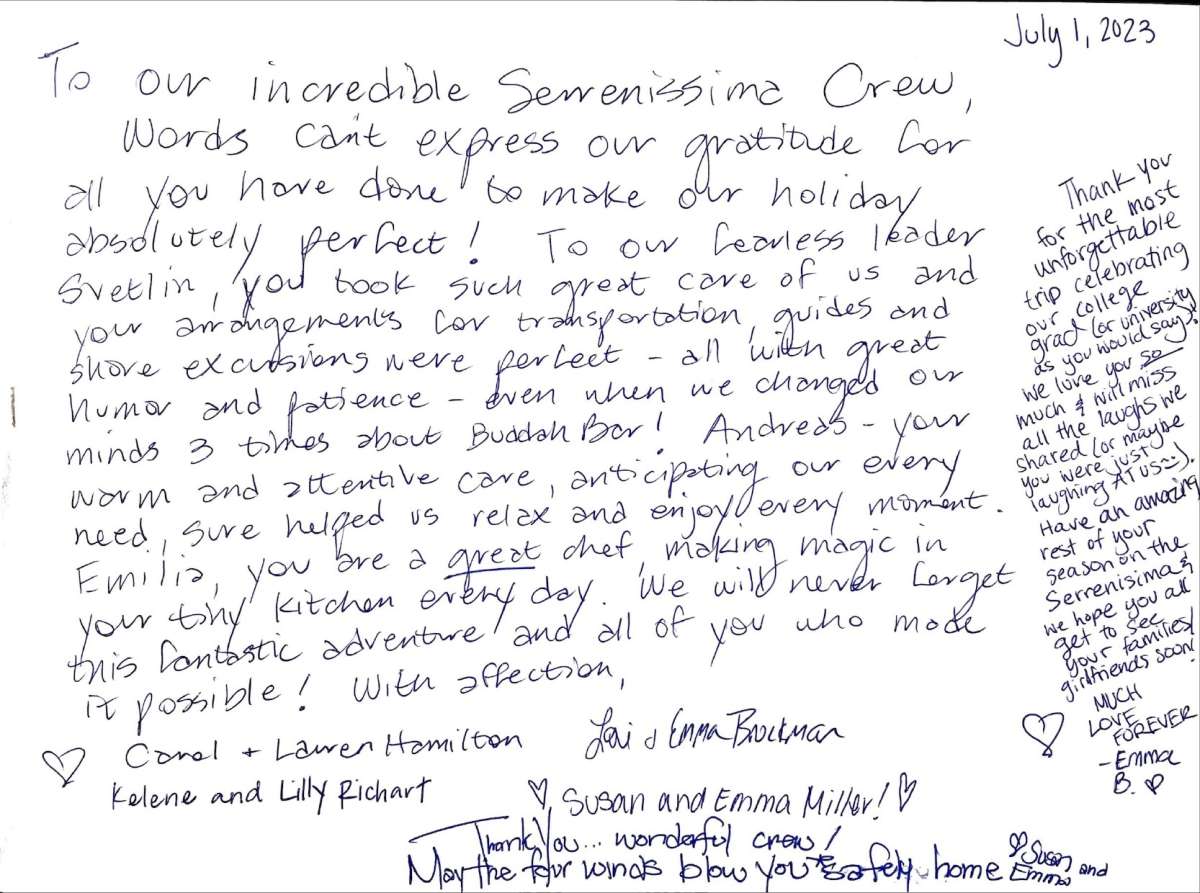 July 1, 2023
To our incredible Serrenissima Crew,
Words can't express our gratitude for
all you have done to make our holiday
absolutely perfect! To our fearless leader
Svetlin, you took such great care of us and
your arrangements for transportation, guides and
shore excursions were perfect - all with great
humor and patience - even when we changed our
minds 3 times about Buddah Bar! Andreas - your
warm and attentive care, anticipating our every
need, sure helped us relax and enjoy every moment.
Emilia, you are a great chef, making magic in
your tiny kitchen every day. We will never forget
this fantastic adventure and all of you who made
it possible! With affection,
♡ Carol + Lauren Hamilton
Lori & Emma Brockman
Kelene and Lilly Richart
♡ Susan and Emma Miller! ♡
Thank You... wonderful crew!
May the four winds blow you safely home ♡ Susan and
Emma
Thank you
for the most
unforgettable
trip celebrating
our college
grad (or university
as you would say)!
We love you so
much & will miss
all the laughs we
shared (or maybe
you were just
laughing AT us :)).
Have an amazing
rest of your
season on the
Serrenisima &
we hope you all
get to see
your families/
girlfriends soon!
♡ MUCH
LOVE
FOREVER
- Emma
B. ♡